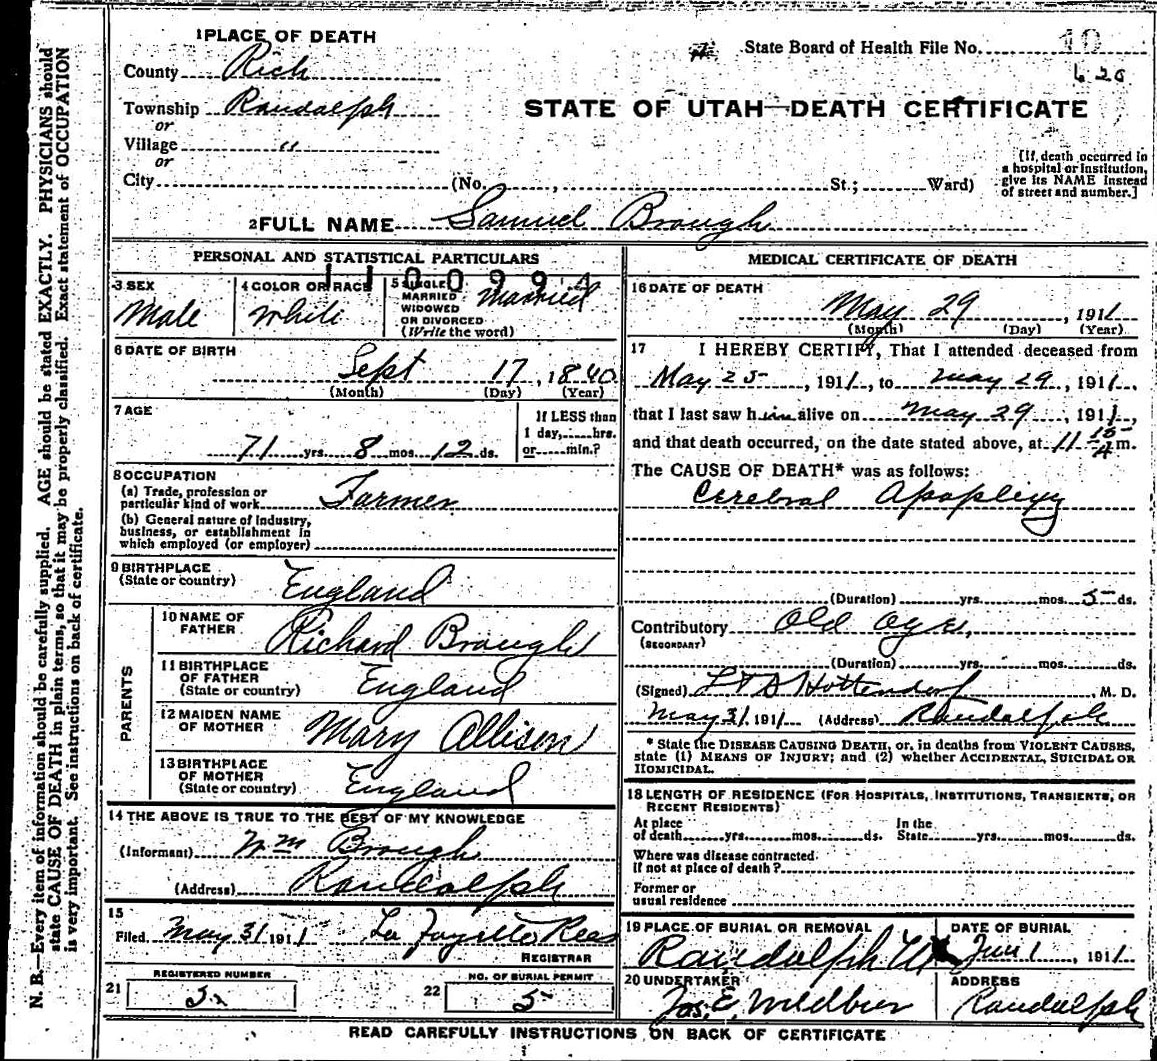 N. B.—Every item of information should be carefully supplied. AGE should be stated EXACTLY. PHYSICIANS should
state CAUSE OF DEATH in plain terms, so that it may be properly classified. Exact statement of OCCUPATION
is very important. See instructions on back of certificate.
1 PLACE OF DEATH
County Rich
Township Randolph
or
Village "
or
City (No. , St.; Ward)
State Board of Health File No. 10
620
STATE OF UTAH—DEATH CERTIFICATE
[If death occurred in
a hospital or institution,
give its NAME instead
of street and number.]
2 FULL NAME Samuel Brough
PERSONAL AND STATISTICAL PARTICULARS
1100994
3 SEX
Male
4 COLOR OR RACE
White
5 SINGLE
MARRIED
WIDOWED
OR DIVORCED
(Write the word)
Married
6 DATE OF BIRTH
Sept 17, 1840
(Month) (Day) (Year)
7 AGE
71 yrs. 8 mos. 12 ds.
If LESS than
1 day, hrs.
or min.?
8 OCCUPATION
(a) Trade, profession or
particular kind of work Farmer
(b) General nature of industry,
business, or establishment in
which employed (or employer)
9 BIRTHPLACE
(State or country)
England
PARENTS
10 NAME OF
FATHER
Richard Brough
11 BIRTHPLACE
OF FATHER
(State or country)
England
12 MAIDEN NAME
OF MOTHER
Mary Allison
13 BIRTHPLACE
OF MOTHER
(State or country)
England
14 THE ABOVE IS TRUE TO THE BEST OF MY KNOWLEDGE
(Informant) Wm Brough
(Address) Randolph
15
Filed May 31 1911 La Fayette Rees
REGISTRAR
REGISTERED NUMBER
21
NO. OF BURIAL PERMIT
22 5
MEDICAL CERTIFICATE OF DEATH
16 DATE OF DEATH
May 29, 1911
(Month) (Day) (Year)
17 I HEREBY CERTIFY, That I attended deceased from
May 25, 1911, to May 29, 1911,
that I last saw him alive on May 29, 1911,
and that death occurred, on the date stated above, at 11 15 A m.
The CAUSE OF DEATH* was as follows:
Cerebral Apoplexy
(Duration) yrs. mos. 5 ds.
Contributory Old age,
(SECONDARY)
(Duration) yrs. mos. ds.
(Signed) Hottendorf, M. D.
May 31 1911 (Address) Randolph
* State the DISEASE CAUSING DEATH, or, in deaths from VIOLENT CAUSES,
state (1) MEANS OF INJURY; and (2) whether ACCIDENTAL, SUICIDAL OR
HOMICIDAL.
18 LENGTH OF RESIDENCE (FOR HOSPITALS, INSTITUTIONS, TRANSIENTS, OR
RECENT RESIDENTS)
At place In the
of death yrs. mos. ds. State yrs. mos. ds.
Where was disease contracted
if not at place of death?
Former or
usual residence
19 PLACE OF BURIAL OR REMOVAL
Randolph Ut
DATE OF BURIAL
Jun 1, 1911
20 UNDERTAKER
Jos. E.
ADDRESS
Randolph
READ CAREFULLY INSTRUCTIONS ON BACK OF CERTIFICATE